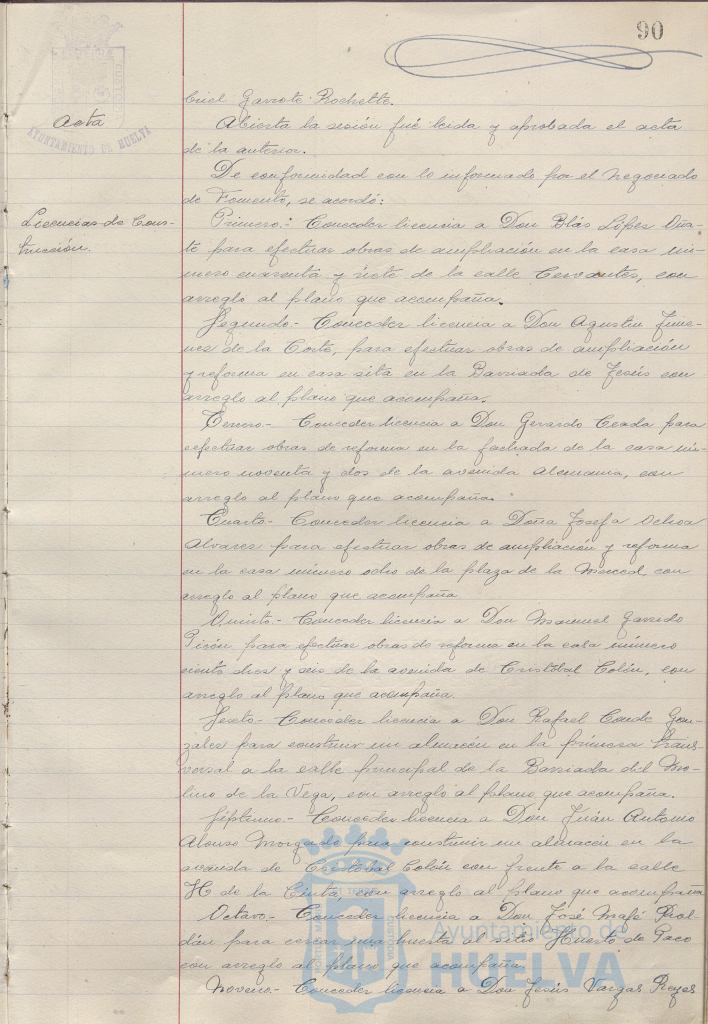 90
AYUNTAMIENTO DE HUELVA
Acta
Licencias de Cons-
trucción.
briel Garrote Rochette.
Abierta la sesión fué leida y aprobada el acta
de la anterior.
De conformidad con lo informado por el Negociado
de Fomento, se acordó:
Primero.: Conceder licencia a Don Blás López Oña-
te para efectuar obras de ampliación en la casa nú-
mero cuarenta y siete de la calle Cervantes, con
arreglo al plano que acompaña.
Segundo.- Conceder licencia a Don Agustin Jime-
nez de la Corte, para efectuar obras de ampliación
y reforma en casa sita en la Barriada de Jesús con
arreglo al plano que acompaña.
Tercero.- Conceder licencia a Don Gerardo Ceada para
efectuar obras de reforma en la fachada de la casa nú-
mero noventa y dos de la avenida Alemania, con
arreglo al plano que acompaña.
Cuarto.- Conceder licencia a Doña Josefa Ochoa
Alvarez para efectuar obras de ampliación y reforma
en la casa número ocho de la plaza de la Merced, con
arreglo al plano que acompaña
Quinto.- Conceder licencia a Don Manuel Garrido
Picón para efectuar obras de reforma en la casa número
ciento diez y seis de la avenida de Cristóbal Colón, con
arreglo al plano que acompaña.
Sexto.- Conceder licencia a Don Rafael Conde Gon-
zález para construir un almacén en la primera trans-
versal a la calle principal de la Barriada del Mo-
lino de la Vega, con arreglo al plano que acompaña.
Septimo.- Conceder licencia a Don Juán Antonio
Alonso Morgado para construir un almacén en la
avenida de Cristóbal Colón con frente a la calle
H de la Cinta, con arreglo al plano que acompaña
Octavo.- Conceder licencia a Don José Mafé Rol-
dán para cercar una huerta al sitio Huerto de Paco
con arreglo al plano que acompaña
Noveno.- Conceder licencia a Don Jesús Vargas Reyes
Ayuntamiento de
HUELVA